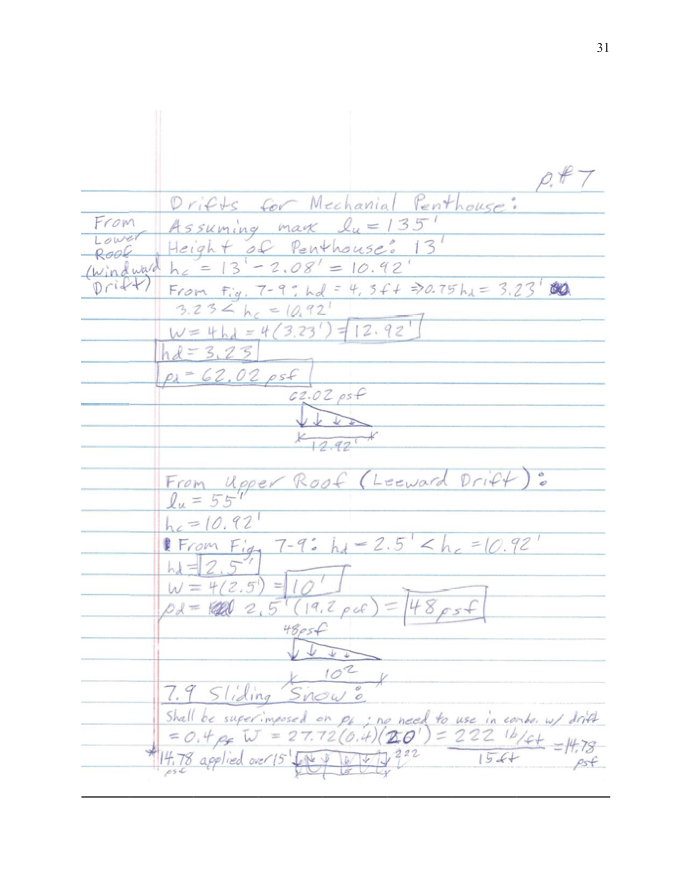 31
p.#7
Drifts for Mechanial Penthouse:
From Lower Roof (Windward Drift)
Assuming max lu = 135'
Height of Penthouse: 13'
hc = 13' - 2.08' = 10.92'
From Fig. 7-9: hd = 4.3ft ⇒ 0.75hd = 3.23'
3.23 < hc = 10.92'
W = 4hd = 4(3.23') = 12.92'
hd = 3.23
pd = 62.02 psf
62.02 psf
12.92'
From Upper Roof (Leeward Drift):
lu = 55'
hc = 10.92'
From Fig. 7-9: hd = 2.5' < hc = 10.92'
hd = 2.5'
W = 4(2.5') = 10'
pd = 2.5'(19.2 pcf) = 48 psf
48psf
10
7.9 Sliding Snow:
Shall be superimposed on ; no need to use in combo. w/ drift
= 0.4 pf W = 27.72(0.4)(20') = 222 lb/ft / 15 ft = 14.78 psf
*14.78 psf applied over 15' 222